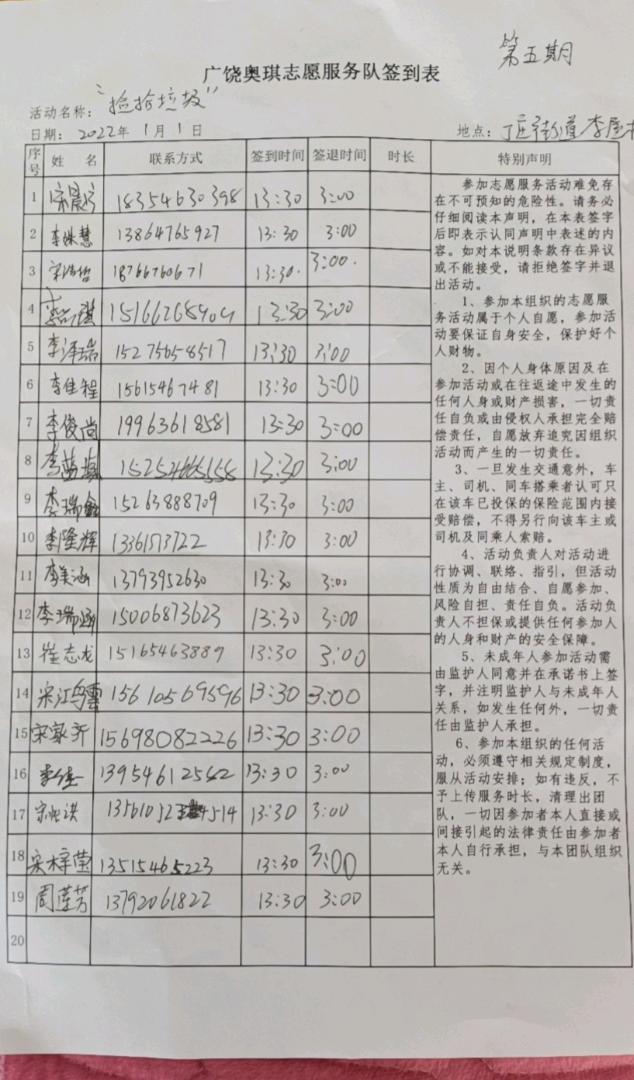 第五期
广饶奥琪志愿服务队签到表
活动名称："捡拾垃圾"
日期：2022年1月1日
地点：丁庄街道李屋
序号 姓 名 联系方式 签到时间 签退时间 时长 特别声明
1 宋晨宇 18354630398 13:30 3:00
2 李姝慧 13864765927 13:30 3:00
3 宋浩哲 18766760671 13:30 3:00
4 琪 13:30 3:00
5 李泽瑞 15275658517 13:30 3:00
6 李佳程 15615467481 13:30 3:00
7 李俊尚 19963618581 13:30 3:00
8 李 13:30 3:00
9 李瑞鑫 15263888709 13:30 3:00
10 李隆辉 13361573722 13:30 3:00
11 李美涵 13793952630 13:30 3:00
12 李瑞涵 15006873623 13:30 3:00
13 崔志龙 15165463889 13:30 3:00
14 宋江 15610569596 13:30 3:00
15 宋家齐 15698082226 13:30 3:00
16 李佳 13954612562 13:30 3:00
17 宋 13:30 3:00
18 宋梓莹 13515465223 13:30 3:00
19 周莲芳 13792061822 13:30 3:00
20
参加志愿服务活动难免存
在不可预知的危险性。请务必
仔细阅读本声明，在本表签字
后即表示认同声明中表述的内
容。如对本说明条款存在异议
或不能接受，请拒绝签字并退
出活动。
1、参加本组织的志愿服
务活动属于个人自愿，参加活
动要保证自身安全，保护好个
人财物。
2、因个人身体原因及在
参加活动或在往返途中发生的
任何人身或财产损害，一切责
任自负或由侵权人承担完全赔
偿责任，自愿放弃追究因组织
活动而产生的一切责任。
3、一旦发生交通意外，车
主、司机、同车搭乘者认可只
在该车已投保的保险范围内接
受赔偿，不得另行向该车主或
司机及同乘人索赔。
4、活动负责人对活动进
行协调、联络、指引，但活动
性质为自由结合、自愿参加、
风险自担、责任自负。活动负
责人不担保或提供任何参加人
的人身和财产的安全保障。
5、未成年人参加活动需
由监护人同意并在承诺书上签
字，并注明监护人与未成年人
关系，如发生任何外，一切责
任由监护人承担。
6、参加本组织的任何活
动，必须遵守相关规定制度，
服从活动安排；如有违反，不
予上传服务时长，清理出团
队，一切因参加者本人直接或
间接引起的法律责任由参加者
本人自行承担，与本团队组织
无关。